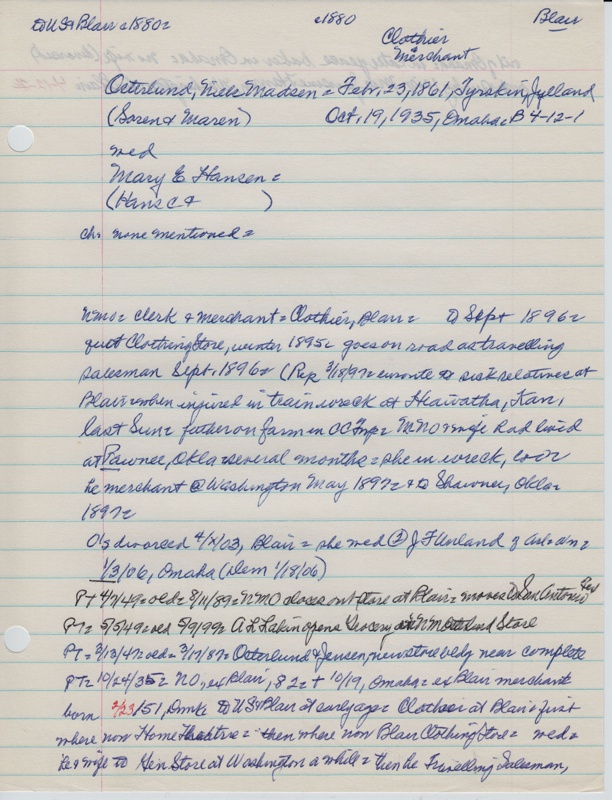 to US & Blair c1880= c1880 Blair
Clothier
Merchant
Osterlund, Niels Madsen = Febr. 23, 1861, Tyrskin, Jylland
(Soren & Maren) Oct. 19, 1935, Omaha = B 4-12-1
wed
Mary E Hansen =
(Hans C & )
ch: none mentioned =
NMO = clerk & merchant = Clothier, Blair = to Sept 1896 =
quit Clothing Store, winter 1895 = goes on road as travelling
salesman Sept. 1896 = (Rep 3/18/97 = enroute to sick relatives at
Blair when injured in train wreck at Hiawatha, Kan,
last Sun = father on farm in OC Twp = NMO & wife had lived
at Pawnee, Okla several months = she in wreck,
he merchant @ Washington May 1897 = & to Shawnee, Okla =
1897 =
O's divorced 4/x/03, Blair = she wed ② J F Unland of =
1/3/06, Omaha (Dem 1/18/06)
PT 4/7/49 = old = 8/11/89 = NMO closes out store at Blair = moves to San Antonio Tex
PT = 5/5/49 = old 5/9/99 = A L Lakin opens Grocery in NM Osterlund Store
PT = 3/13/47 = old = 3/17/87 = Osterlund & Jensen, new store bldg near complete
PT = 10/24/35 = NO, ex Blair, 82 = † 10/19, Omaha = ex Blair merchant
born 2/23/51, Dmk to US & Blair at early age = Clothier at Blair = first
where now Home Theatre = then where now Blair Clothing Store = wed =
he & wife to Gen Store at Washington a while = then he Travelling Salesman,